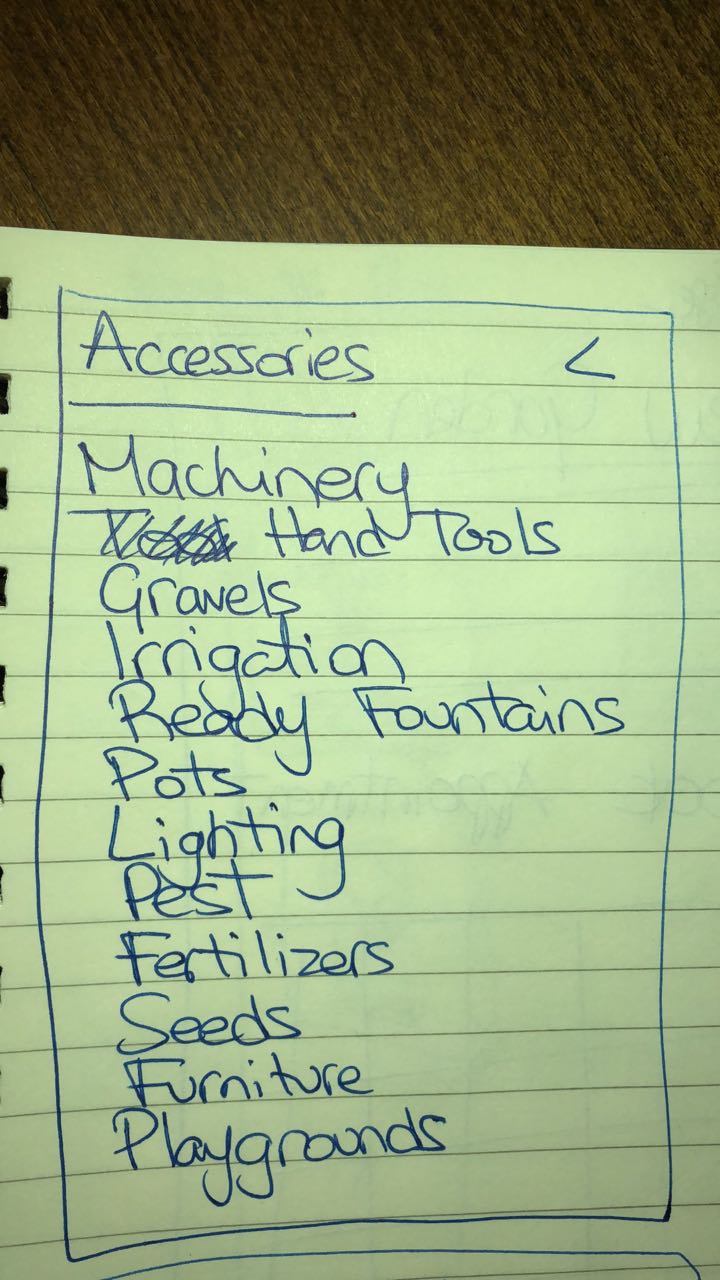 Accessories <
Machinery
Hand Tools
Gravels
Irrigation
Ready Fountains
Pots
Lighting
Pest
Fertilizers
Seeds
Furniture
Playgrounds